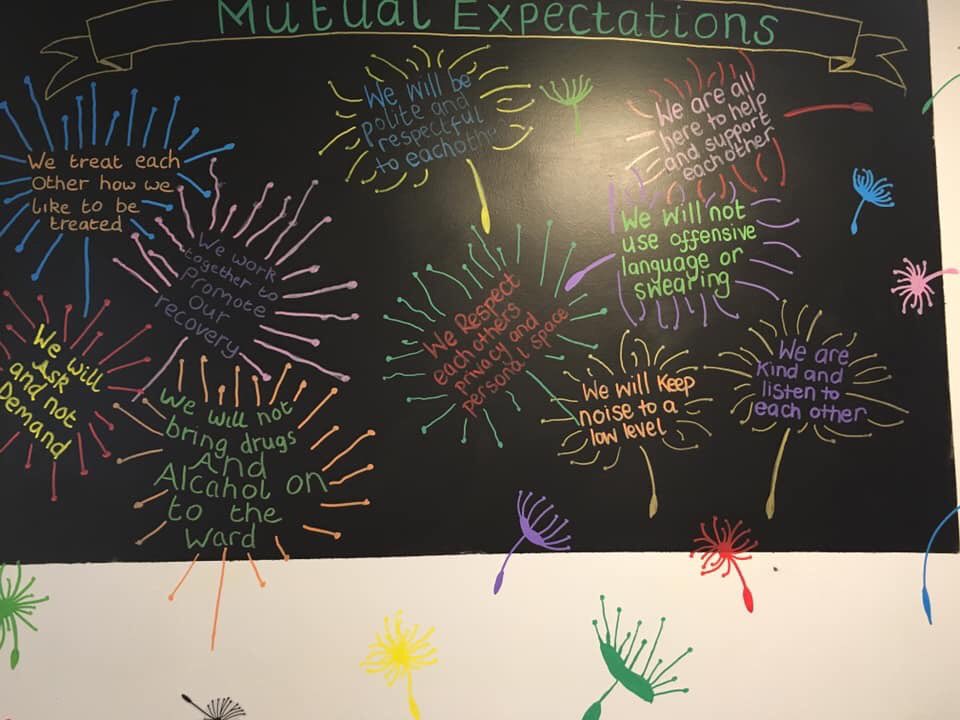 Mutual Expectations
We treat each
Other how we
like to be
treated
We will be
polite and
respectful
to eachother
We are all
here to help
and support
each other
We work
together to
Promote
Our
recovery
We will not
use offensive
language or
swearing
We Respect
each others
privacy and
personal space
We will
Ask
and not
Demand
We will not
bring drugs
And
Alcahol on
to the
Ward
We will Keep
noise to a
low level
We are
Kind and
listen to
each other